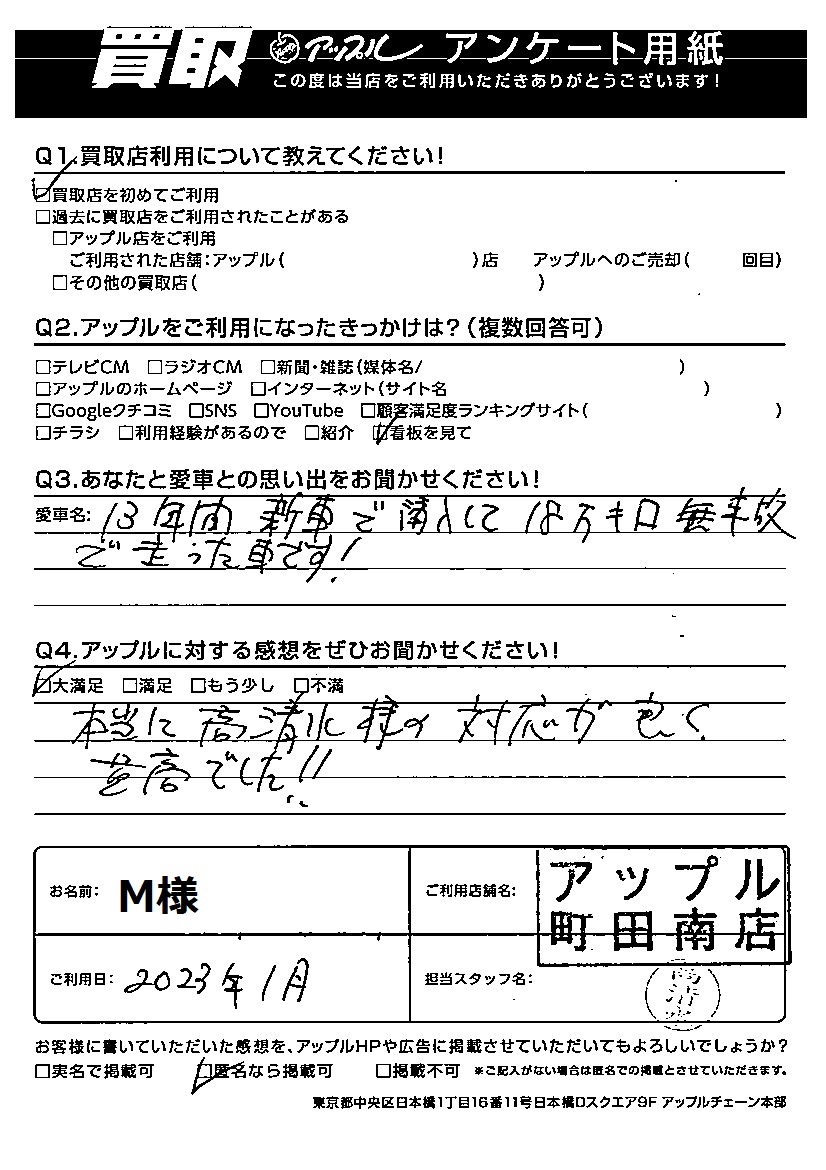 買取 アップル アンケート用紙
この度は当店をご利用いただきありがとうございます!
Q1.買取店利用について教えてください!
☑買取店を初めてご利用
□過去に買取店をご利用されたことがある
□アップル店をご利用
ご利用された店舗:アップル( )店 アップルへのご売却( 回目)
□その他の買取店( )
Q2.アップルをご利用になったきっかけは?(複数回答可)
□テレビCM □ラジオCM □新聞・雑誌(媒体名/ )
□アップルのホームページ □インターネット(サイト名 )
□Googleクチコミ □SNS □YouTube □顧客満足度ランキングサイト( )
□チラシ □利用経験があるので □紹介 ☑看板を見て
Q3.あなたと愛車との思い出をお聞かせください!
愛車名: 13年間 新車で購入して 18万キロ 無事故
で走った車です!
Q4.アップルに対する感想をぜひお聞かせください!
☑大満足 □満足 □もう少し □不満
本当に高清水様の対応が良く
最高でした!!
お名前: M様 ご利用店舗名: アップル
町田南店
ご利用日: 2023年1月 担当スタッフ名: 高清水
お客様に書いていただいた感想を、アップルHPや広告に掲載させていただいてもよろしいでしょうか?
□実名で掲載可 ☑匿名なら掲載可 □掲載不可 ※ご記入がない場合は匿名での掲載とさせていただきます。
東京都中央区日本橋1丁目16番11号日本橋Dスクエア9F アップルチェーン本部